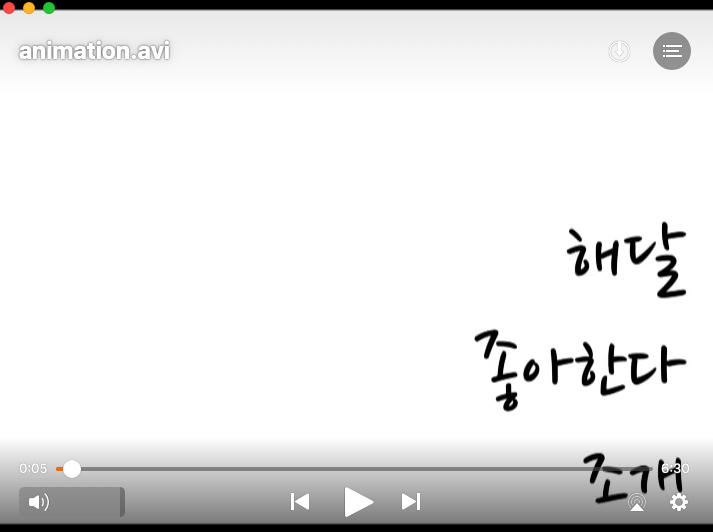 animation.avi
해달
좋아한다
조개
0:05 6:30